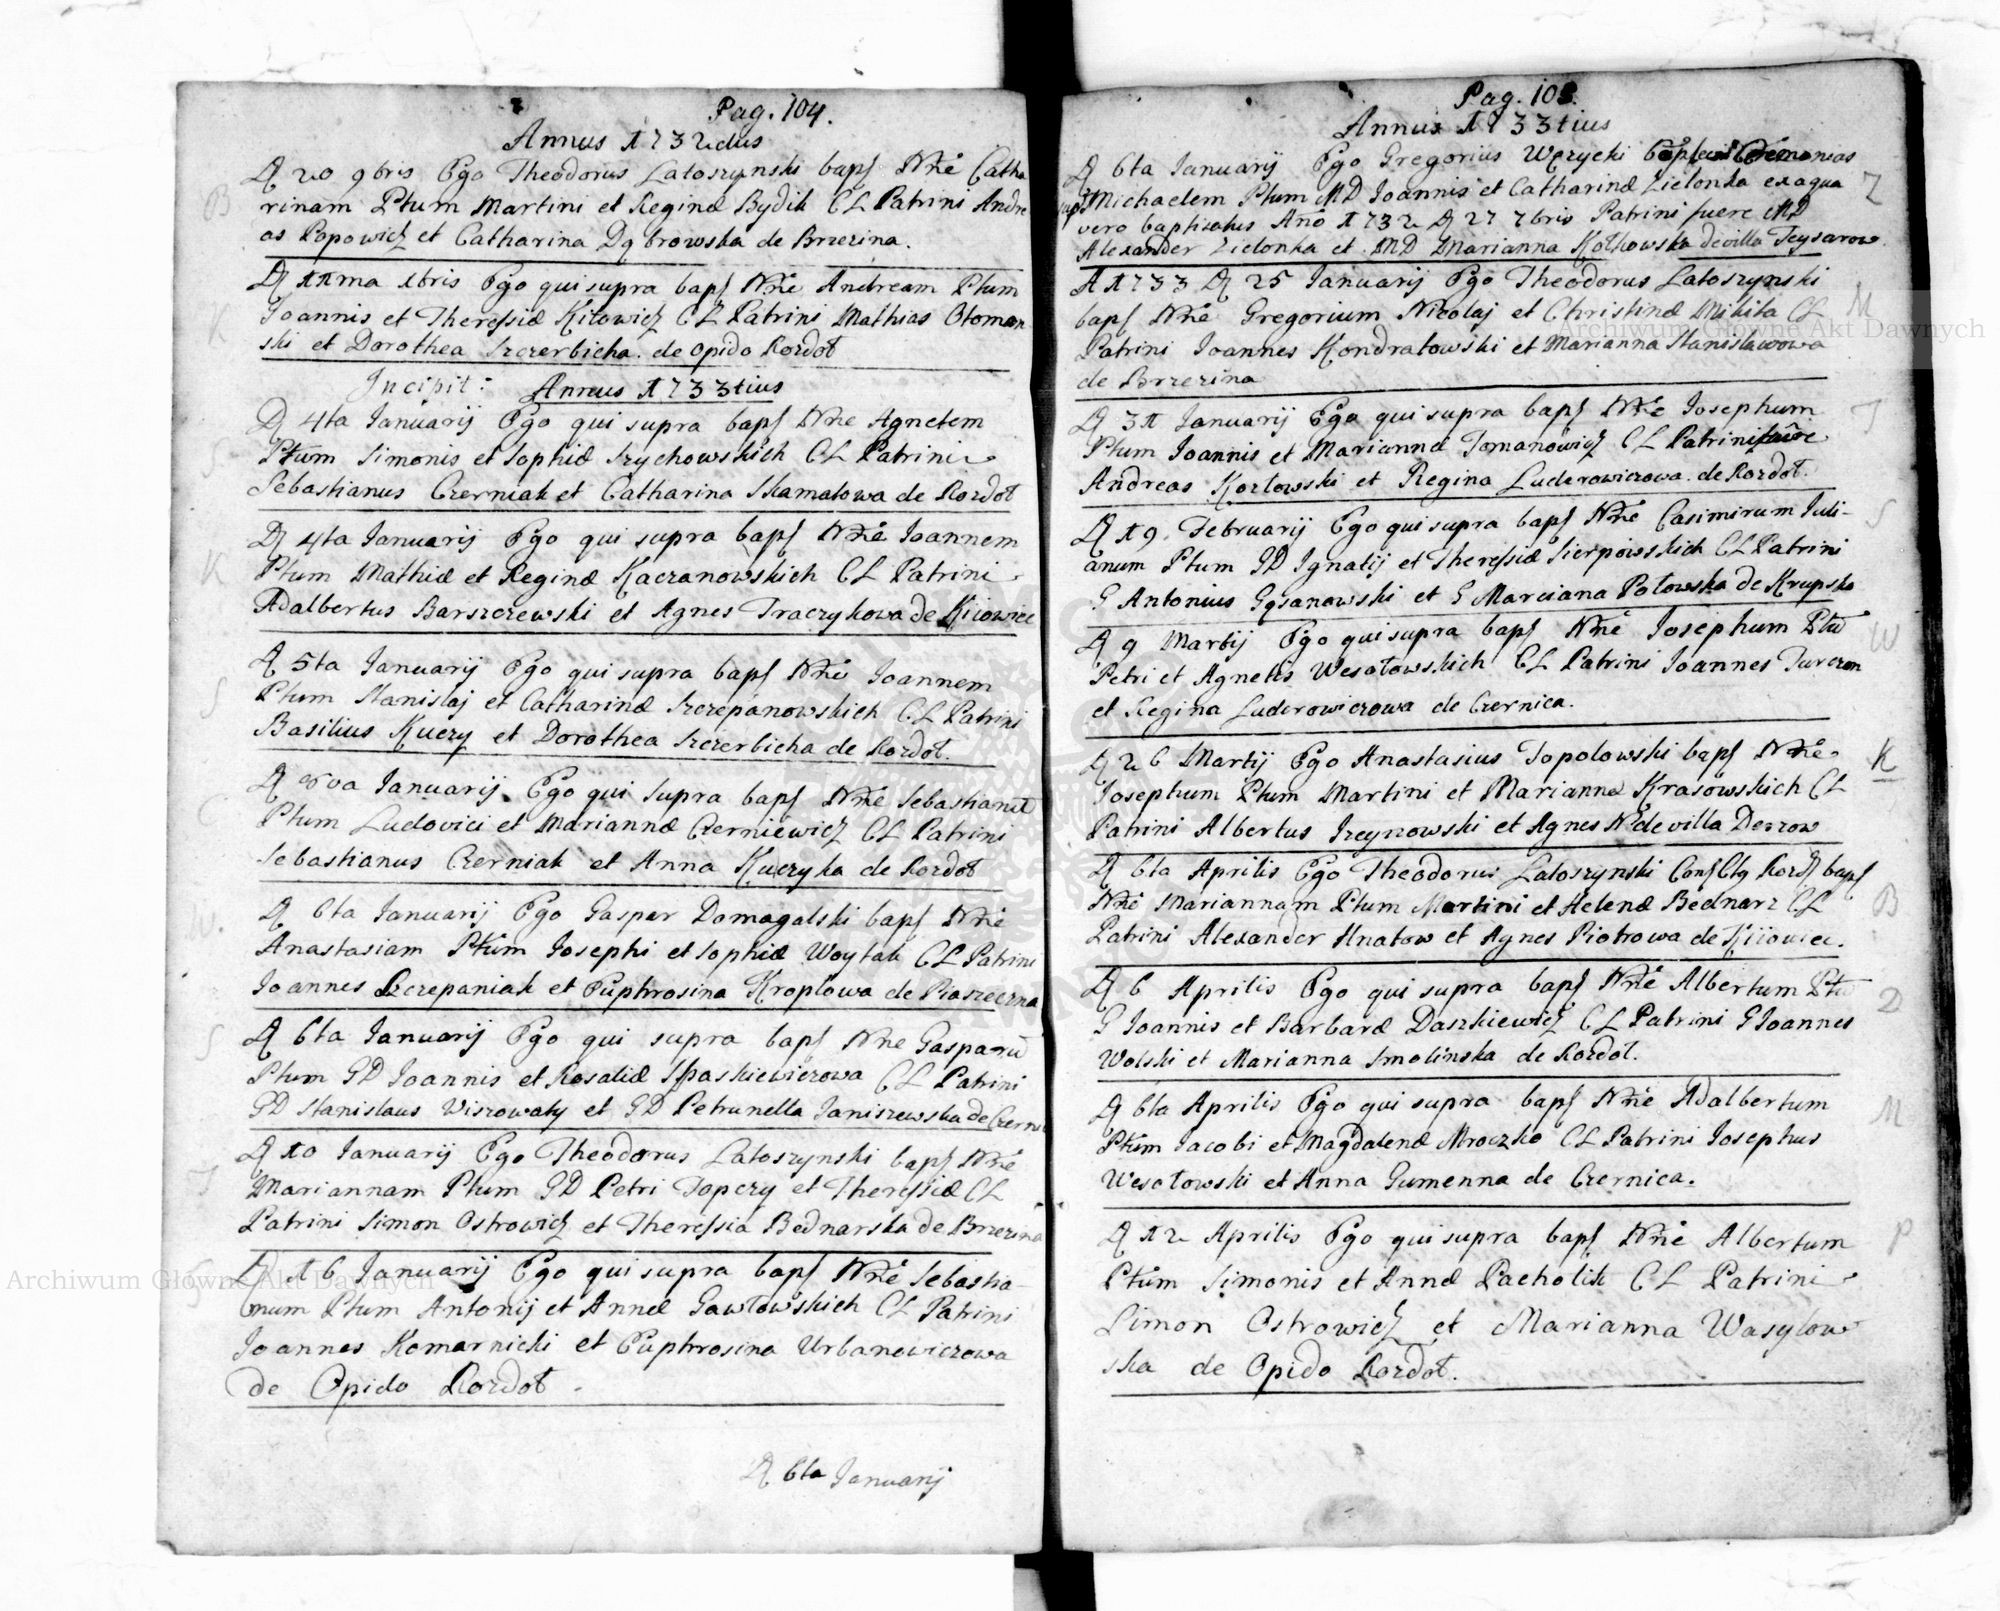 Pag. 104.
Annus 1732dus
B
D 20 9bris Ego Theodorus Latoszynski bapt Nne Catha
rinam Ptum Martini et Reginæ Bydik CL Patrini Andre
as Popowicz et Catharina Dąbrowska de Brzezina.
K
D 11ma xbris Ego qui supra bapt Nne Andream Ptum
Joannis et Theressiæ Kitowicz CL Patrini Mathias Otoman
ski et Dorothea Szczerbicha de Opido Rozdoł
Incipit: Annus 1733tius
S
D 4ta Januarij Ego qui supra bapt Nne Agnetem
Ptum Simonis et Sophiæ Szychowskich CL Patrini
Sebastianus Czerniak et Catharina Skamatowa de Rozdoł
K
D 4ta Januarij Ego qui supra bapt Nne Joannem
Ptum Mathiæ et Reginæ Kaczanowskich CL Patrini
Adalbertus Barszczewski et Agnes Traczykowa de Kiiowiec
S
D 5ta Januarij Ego qui supra bapt Nne Joannem
Ptum Stanislaj et Catharinæ Szczepanowskich CL Patrini
Basilius Kuczy et Dorothea Szczerbicha de Rozdoł.
C
D 8va Januarij Ego qui supra bapt Nne Sebastianū
Ptum Ludovici et Mariannæ Czerniewicz CL Patrini
Sebastianus Czerniak et Anna Kuczyka de Rozdoł
W.
D 6ta Januarij Ego Gaspar Domagalski bapt Nne
Anastasiam Ptum Josephi et Sophiæ Woytak CL Patrini
Joannes Szczepaniak et Euphrosina Kroplowa de Piaseczna
S
D 6ta Januarij Ego qui supra bapt Nne Gasparū
Ptum GD Joannis et Rosaliæ Spaskiewiczowa CL Patrini
GD Stanislaus Wiszowaty et GD Petrunella Janiszewska de Czerni
T
D 10 Januarij Ego Theodorus Latoszynski bapt Nne
Mariannam Ptum GD Petri Topczy et Theressiæ CL
Patrini Simon Ostrowicz et Theressia Bednarska de Brzezina
G
D 16 Januarij Ego qui supra bapt Nne Sebastia-
num Ptum Antonij et Annæ Gawłowskich CL Patrini
Joannes Komarnicki et Euphrosina Urbanowiczowa
de Opido Rozdoł.
D 6ta Januarij
Pag. 105.
Annus 1733tius
Z
D 6ta Januarij Ego Gregorius Węzycki Ceremonias
sup Michaelem Ptum MD Joannis et Catharinæ Zielonka ex aqua
vero baptisatus Año 1732 D 27 7bris Patrini fuere MD
Alexander Zielonka et MD Marianna Kotkowska de villa Teysarow
M
A 1733 D 25 Januarij Ego Theodorus Latoszynski
bapt Nne Gregorium Nicolaj et Christinæ Mikita CL
Patrini Joannes Kondratowski et Marianna Stanislawowa
de Brzezina
T
D 31 Januarij Ego qui supra bapt Nne Josephum
Ptum Joannis et Mariannæ Tomanowicz CL Patrini fuere
Andreas Kozłowski et Regina Luderowiczowa de Rozdoł.
S
D 19 Februarij Ego qui supra bapt Nne Casimirum Juli-
anum Ptum GD Ignatij et Theressiæ Sierpowskich CL Patrini
G Antonius Gąsanowski et G Marciana Potowska de Krupsko
W
D 9 Martij Ego qui supra bapt Nne Josephum Ptū
Petri et Agnetis Wesołowskich CL Patrini Joannes Turczen
et Regina Luderowiczowa de Czernica.
K
D 26 Martij Ego Anastasius Topolowski bapt Nne
Josephum Ptum Martini et Mariannæ Krasowskich CL
Patrini Albertus Szeynowski et Agnes N de villa Derzow
B
D 6ta Aprilis Ego Theodorus Latoszynski bapt
Nne Mariannam Ptum Martini et Helenæ Bednarz CL
Patrini Alexander Hnatow et Agnes Piotrowa de Kiiowiec.
D
D 6 Aprilis Ego qui supra bapt Nne Albertum Ptū
G Joannis et Barbaræ Daszkiewicz CL Patrini G Joannes
Wolski et Marianna Smolinska de Rozdoł.
M
D 6ta Aprilis Ego qui supra bapt Nne Adalbertum
Ptum Jacobi et Magdalenæ Mroczko CL Patrini Josephus
Wesołowski et Anna Gumenna de Czernica.
P
D 12 Aprilis Ego qui supra bapt Nne Albertum
Ptum Simonis et Annæ Pacholik CL Patrini
Simon Ostrowicz et Marianna Wasylow
ska de Opido Rozdoł.
Archiwum Główne Akt Dawnych
Archiwum Główne Akt Dawnych